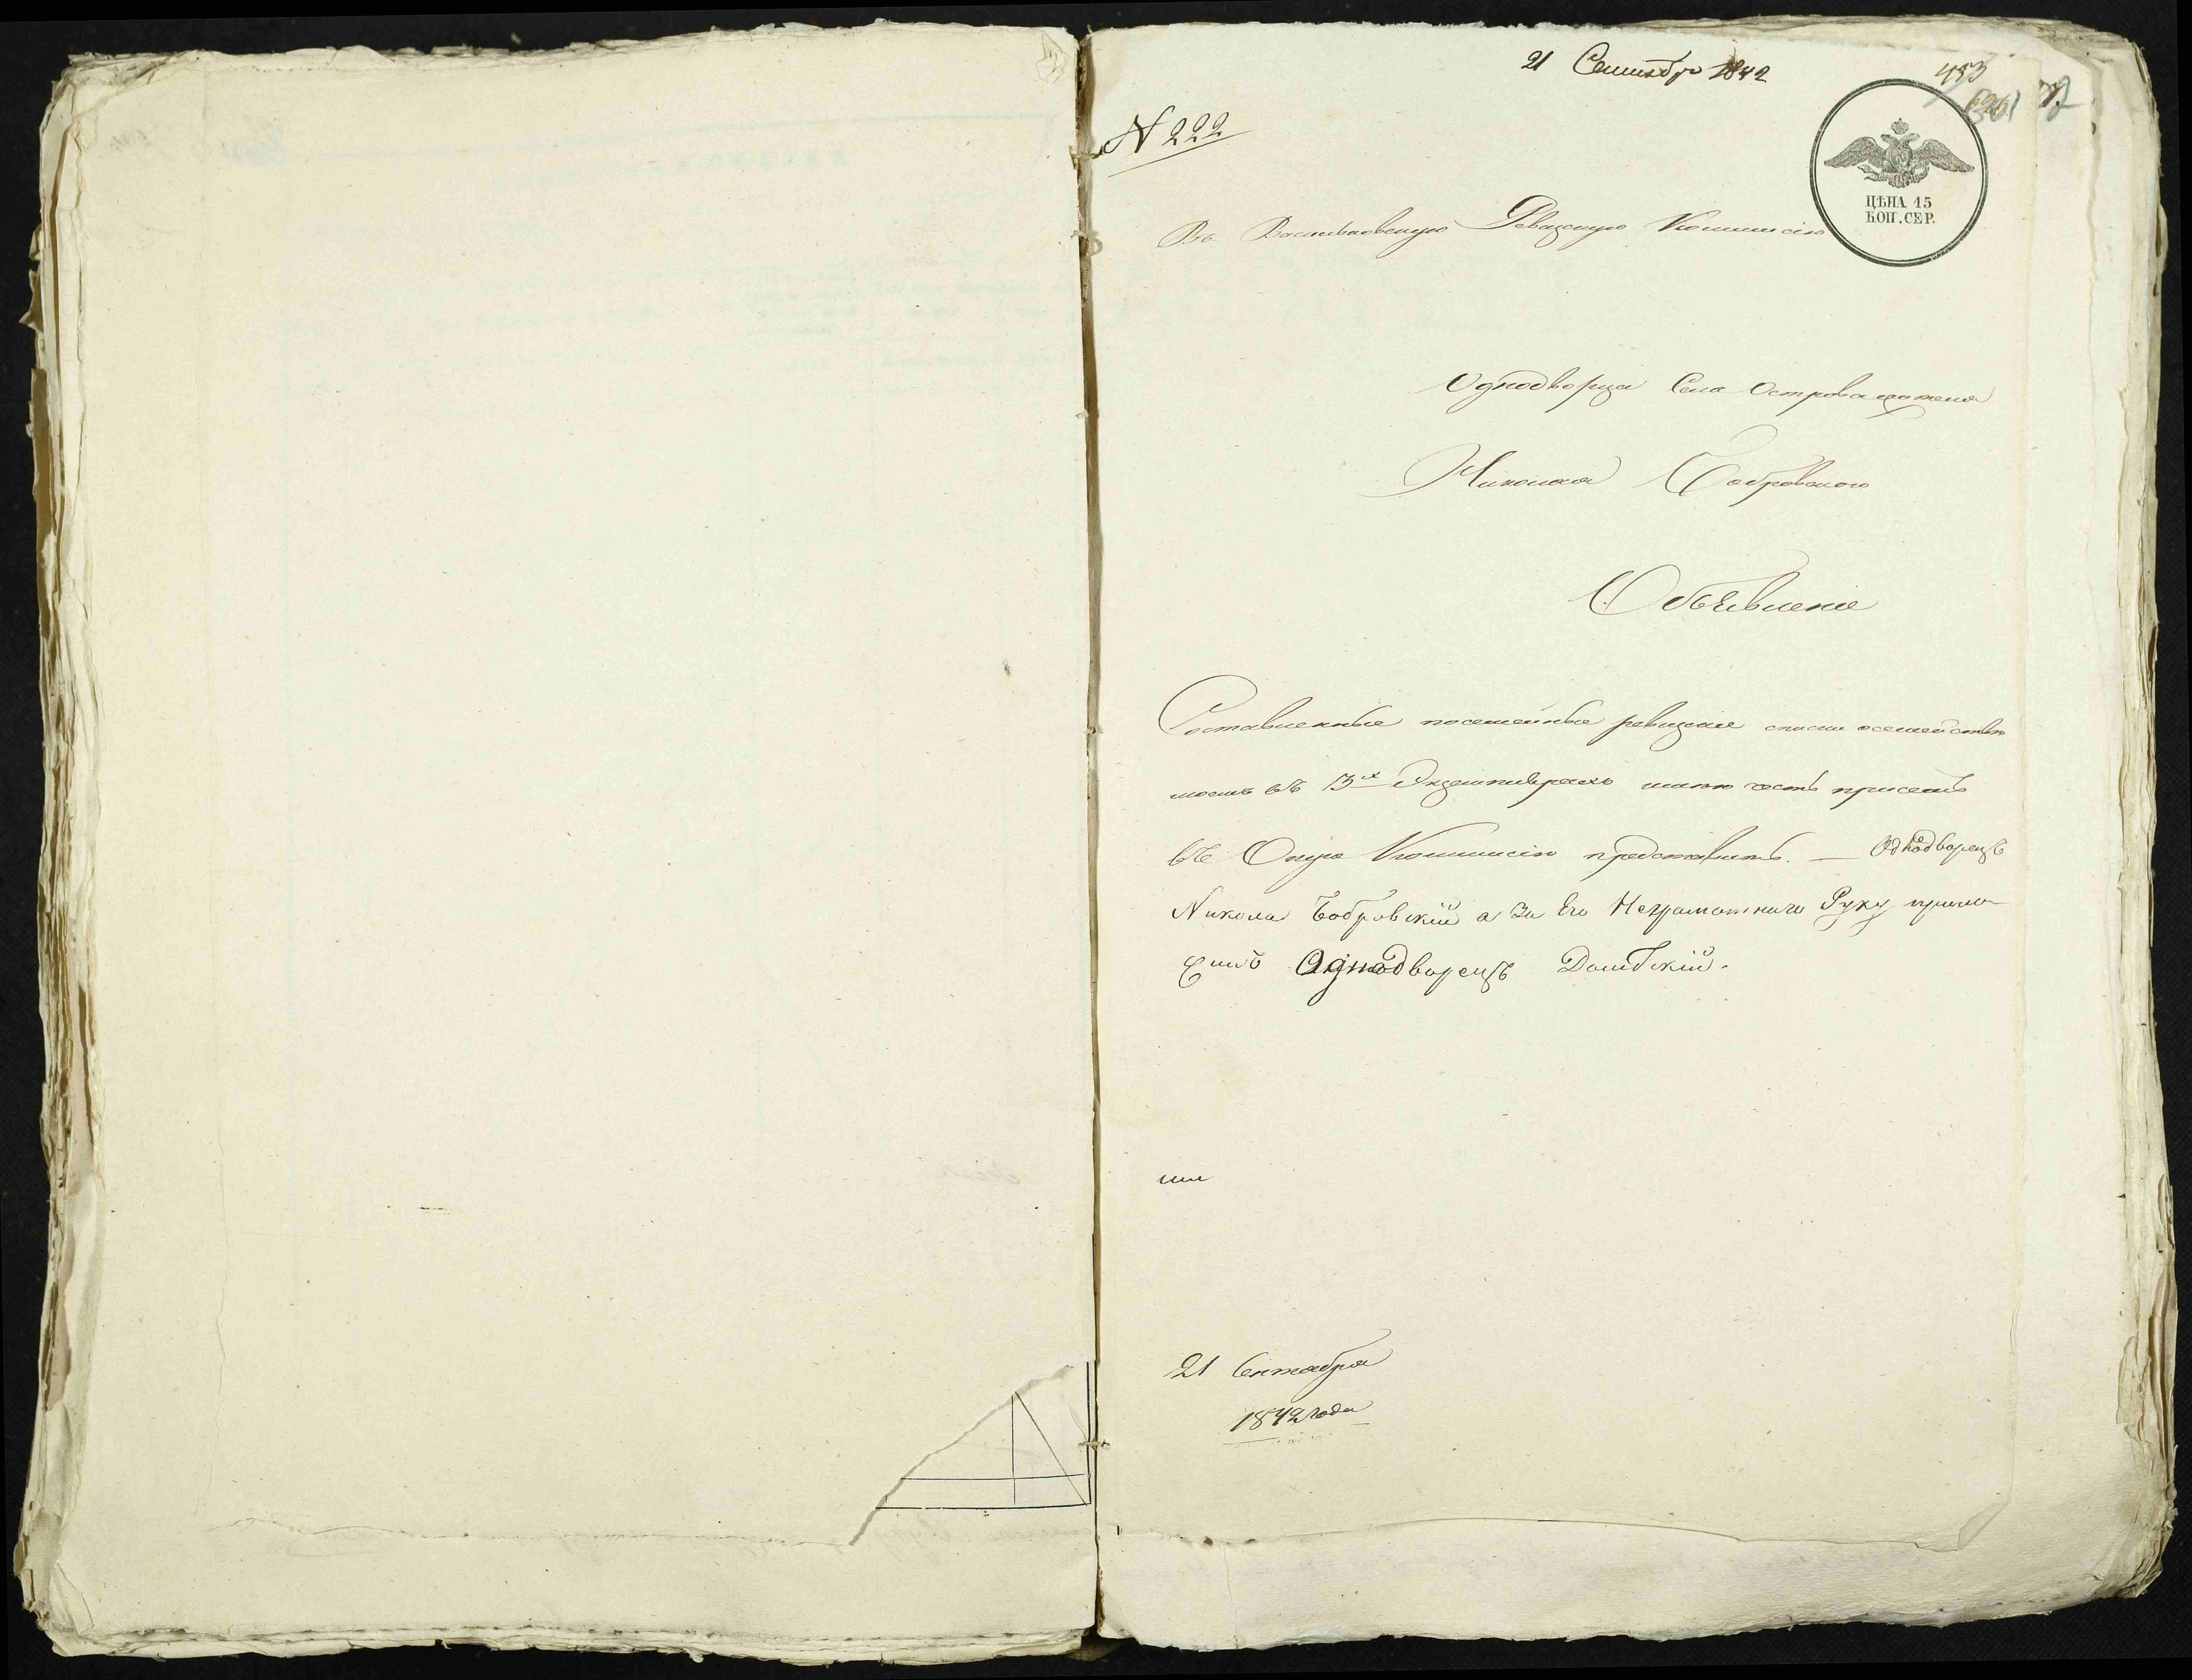 21 Сентябр 1842
453
N 222
ЦѢНА 15
КОП. СЕР.
Въ Васильковскую Ревизскую Коммисію
Однодворца Села
Николая Бобровского
Объявленіе
Составленные посемейные ревизскіе списки о семействѣ
моемъ въ 3х Экземплярахъ имѣю честь при семъ
въ Оную Коммисію представить. — Однодворецъ
Никола Бобровскій а За Его Неграмотнаго Руку прило
жилъ Однодворецъ Домбскій.
21 Сентября
1842 года